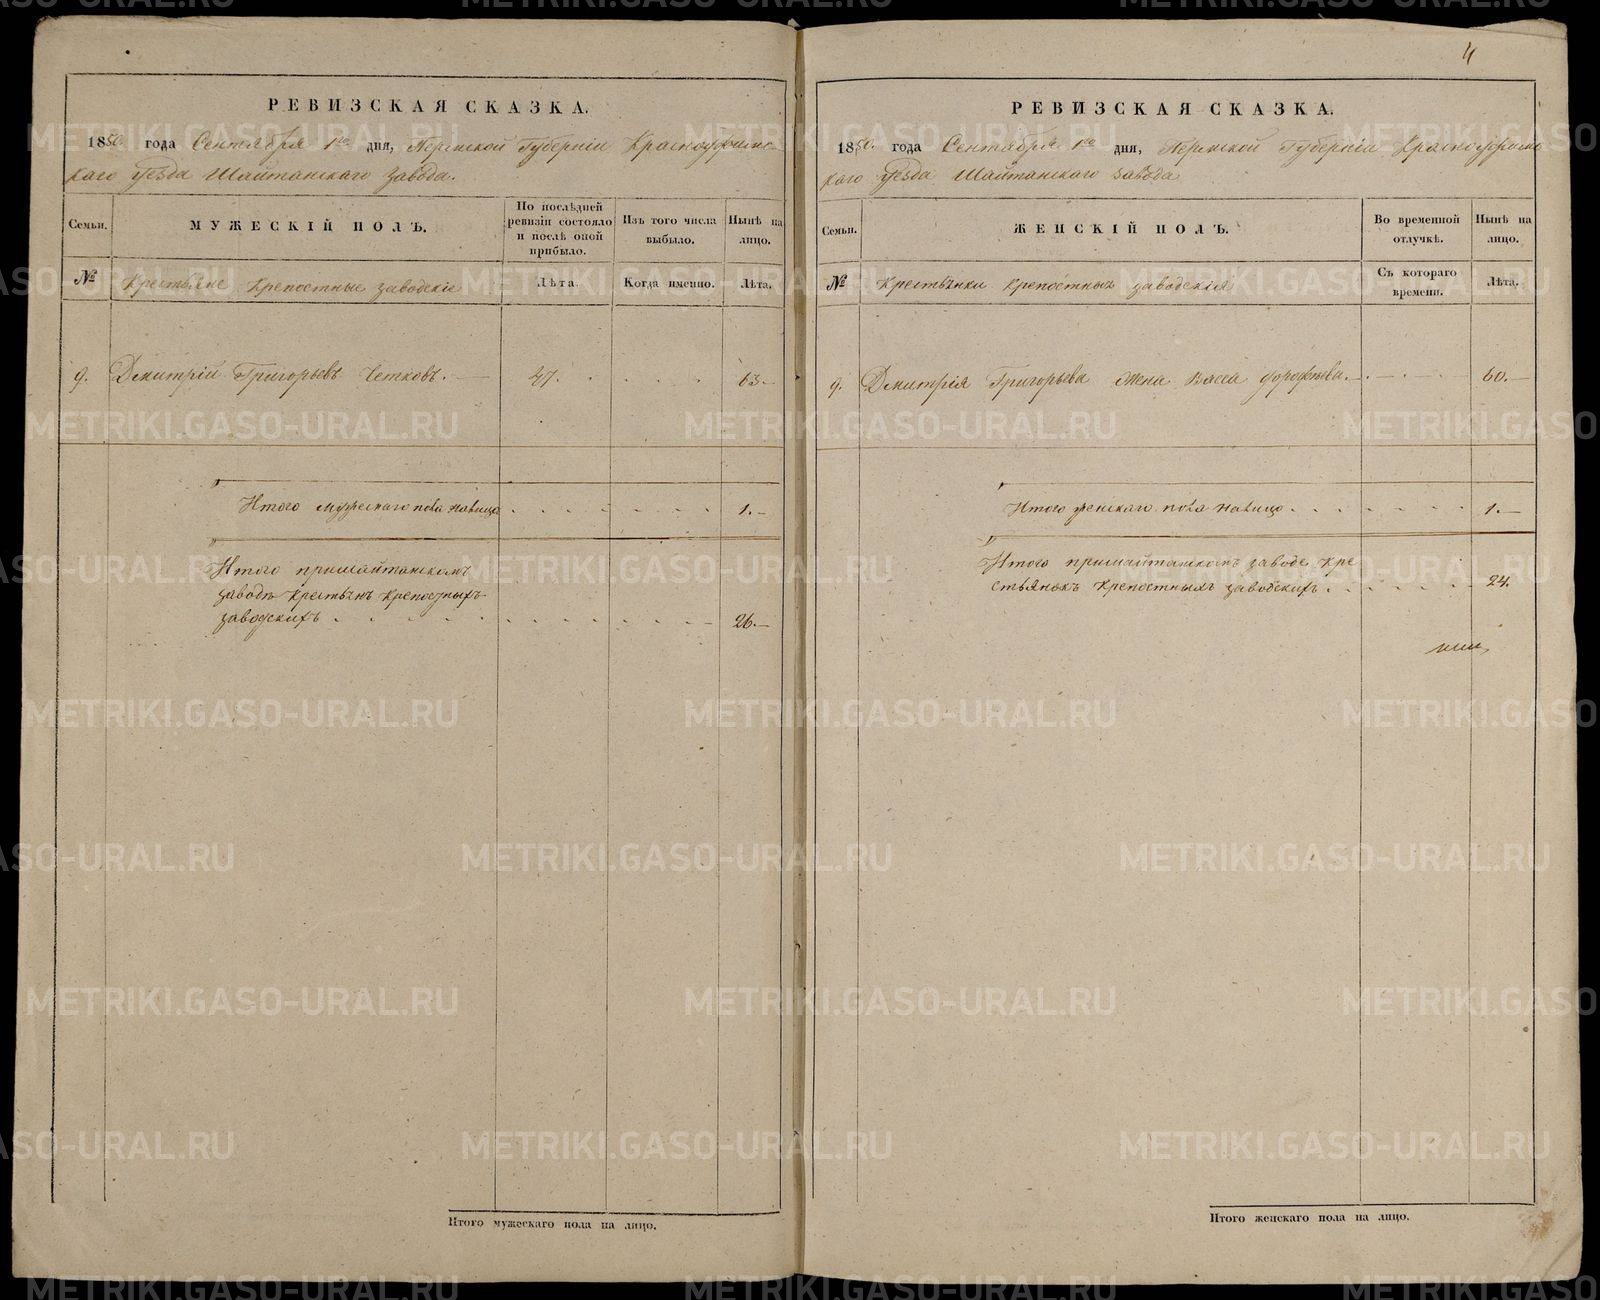 4
РЕВИЗСКАЯ СКАЗКА.
1850. года Сентября 1го дня, Пермской Губерніи Красноуфимс-
каго Уезда Шайтанскаго завода.
Семьи.
МУЖЕСКІЙ ПОЛЪ.
По послѣдней
ревизіи состояло
и послѣ оной
прибыло.
Изъ того числа
выбыло.
Нынѣ на
лицо.
№
Крестьяне крепостные заводскіе
Лѣта.
Когда именно.
Лѣта.
9. Дмитрій Григорьевъ Четковъ. 47. 63.
Итого мужескаго пола налицо 1.
Итого пришайтанскомъ
заводѣ крестьянъ крепостныхъ
заводскихъ 26.
Итого мужескаго пола на лицо.
РЕВИЗСКАЯ СКАЗКА.
1850. года Сентября 1го дня, Пермской Губерніи Красноуфимс
каго Уезда Шайтанскаго завода
Семьи.
ЖЕНСКІЙ ПОЛЪ.
Во временной
отлучкѣ.
Нынѣ на
лицо.
№
Крестьянки крепостных заводскія
Съ котораго
времени.
Лѣта.
9. Дмитрія Григорьева жена Васса Дорофѣева. 60.
Итого женскаго пола налицо 1.
Итого пришайтанскомъ заводе кре
стьянокъ крепостныхъ заводскихъ 24.
Итого женскаго пола на лицо.
METRIKI.GASO-URAL.RU